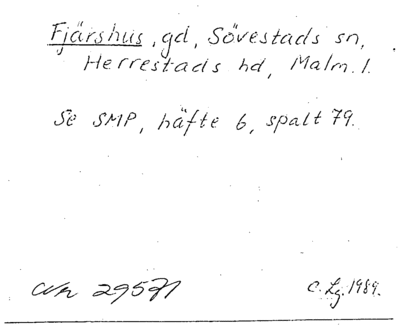 Fjärshus, gd, Sövestads sn,
Herrestads hd, Malm. l.
Se SMP, häfte 6, spalt 79.
29571 C. Lg. 1989.